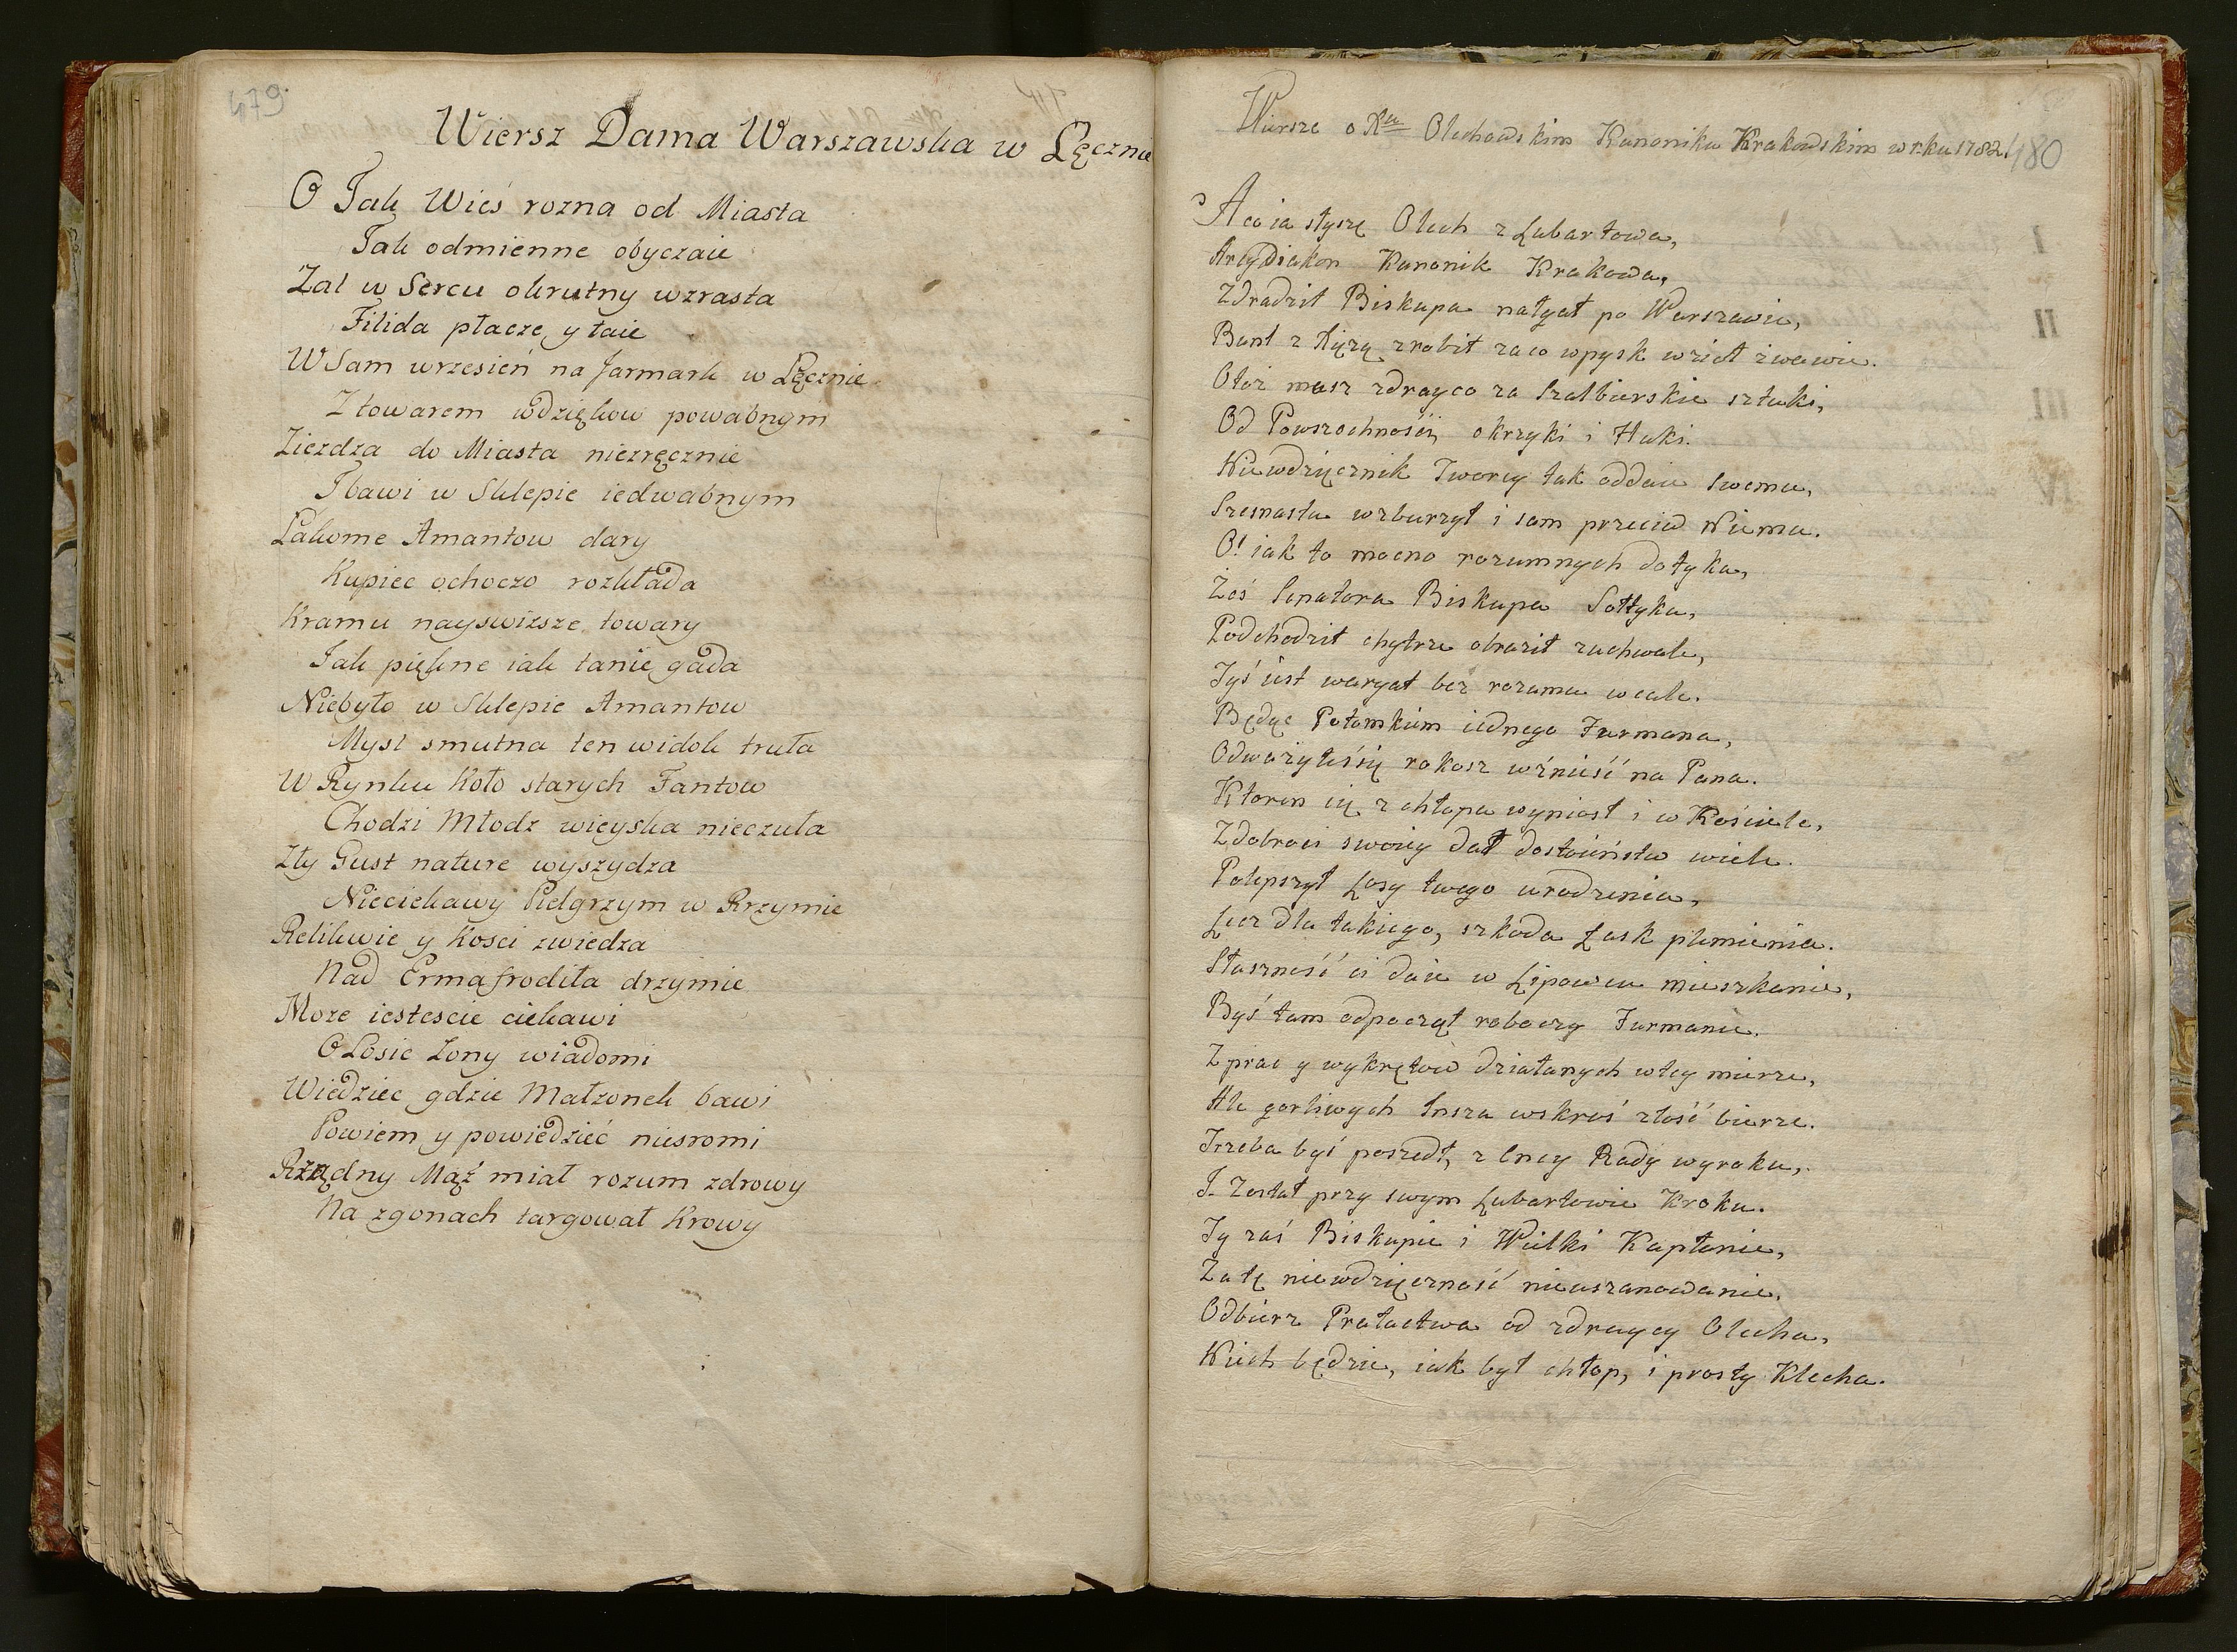 479.
Wiersz Dama Warszawska w Łęcznie
O Jak Wieś rozna od Miasta
Jak odmienne obyczaie
Zal w Sercu okrutny wzrasta
Filida płacze y łaie
W Sam wrzesień na Jarmark w Łęcznie
Z towarem wdzięków powabnym
Ziezdza do Miasta niezręcznie
I bawi w Sklepie iedwabnym
Łakome Amantow dary
Kupiec ochoczo rozkłada
Kramu nayswizsze towary
Jak piękne iak tanie gada
Niebyło w Sklepie Amantow
Mysl smutna ten widok truła
W Rynku koło starych Fantow
Chodzi Młodz wieyska nieczuła
Zły Gust nature wyszydza
Nieciekawy Pielgrzym w Rzymie
Relikwie y Kosci zwiedza
Nad Ermafrodita drzymie
Moze iestescie ciekawi
O Losie Zony wiadomi
Wiedziec gdzie Małzonek bawi
Powiem y powiedzieć niesromi
Rządny Mąż miał rozum zdrowy
Na zgonach targował Krowy
480
Wiersze o Xu Olechowskim Kanoniku Krakowskim w r:ku 1782.
A co ia słyszę Olech z Lubartowa,
Arcydiakon Kanonik Krakowa,
Zdradził Biskupa nałgał po Warszawie,
Bunt z Xiężą zrobił za co w pysk wział żwawie.
Otoż masz zdrayco za Szalbierskie sztuki,
Od Powszechności, okrzyki i Huki.
Niewdzięcznik Tworcy tak oddaie swemu,
Szesnastu wzburzył i sam przeciw Niemu.
O! iak to mocno rozumnych dotyka,
Żeś Senatora Biskupa Sołtyka,
Podchodził chytrze obraził zuchwale,
Tyś iest waryat bez rozumu wcale.
Będąc Potomkiem iednego Furmana,
Odważyłeś się rokosz wźnieść na Pana.
Ktoren cię z chłopa wyniosł i w Kościele,
Z dobroci swoiey dał dostoieństw wiele.
Polepszył Losy twego urodzenia,
Lecz dla takiego, szkoda Łask plemienia.
Słuszność ci daie w Lipowcu mieszkanie,
Byś tam odpoczął roboczy Furmanie.
Z prac y wykrętow działanych w tey mierze,
Ale gorliwych Insza wskroś złość bierze.
Trzeba byś poszedł, z Iney Rady wyroku,
I Został przy swym Lubartowie Kroku.
Ty zaś Biskupie i Wielki Kapłanie,
Za tę niewdzięczność nieuszanowanie,
Odbierz Prałactwa od zdraycy Olecha,
Niech będzie, iak był chłop, i prosty Klecha.